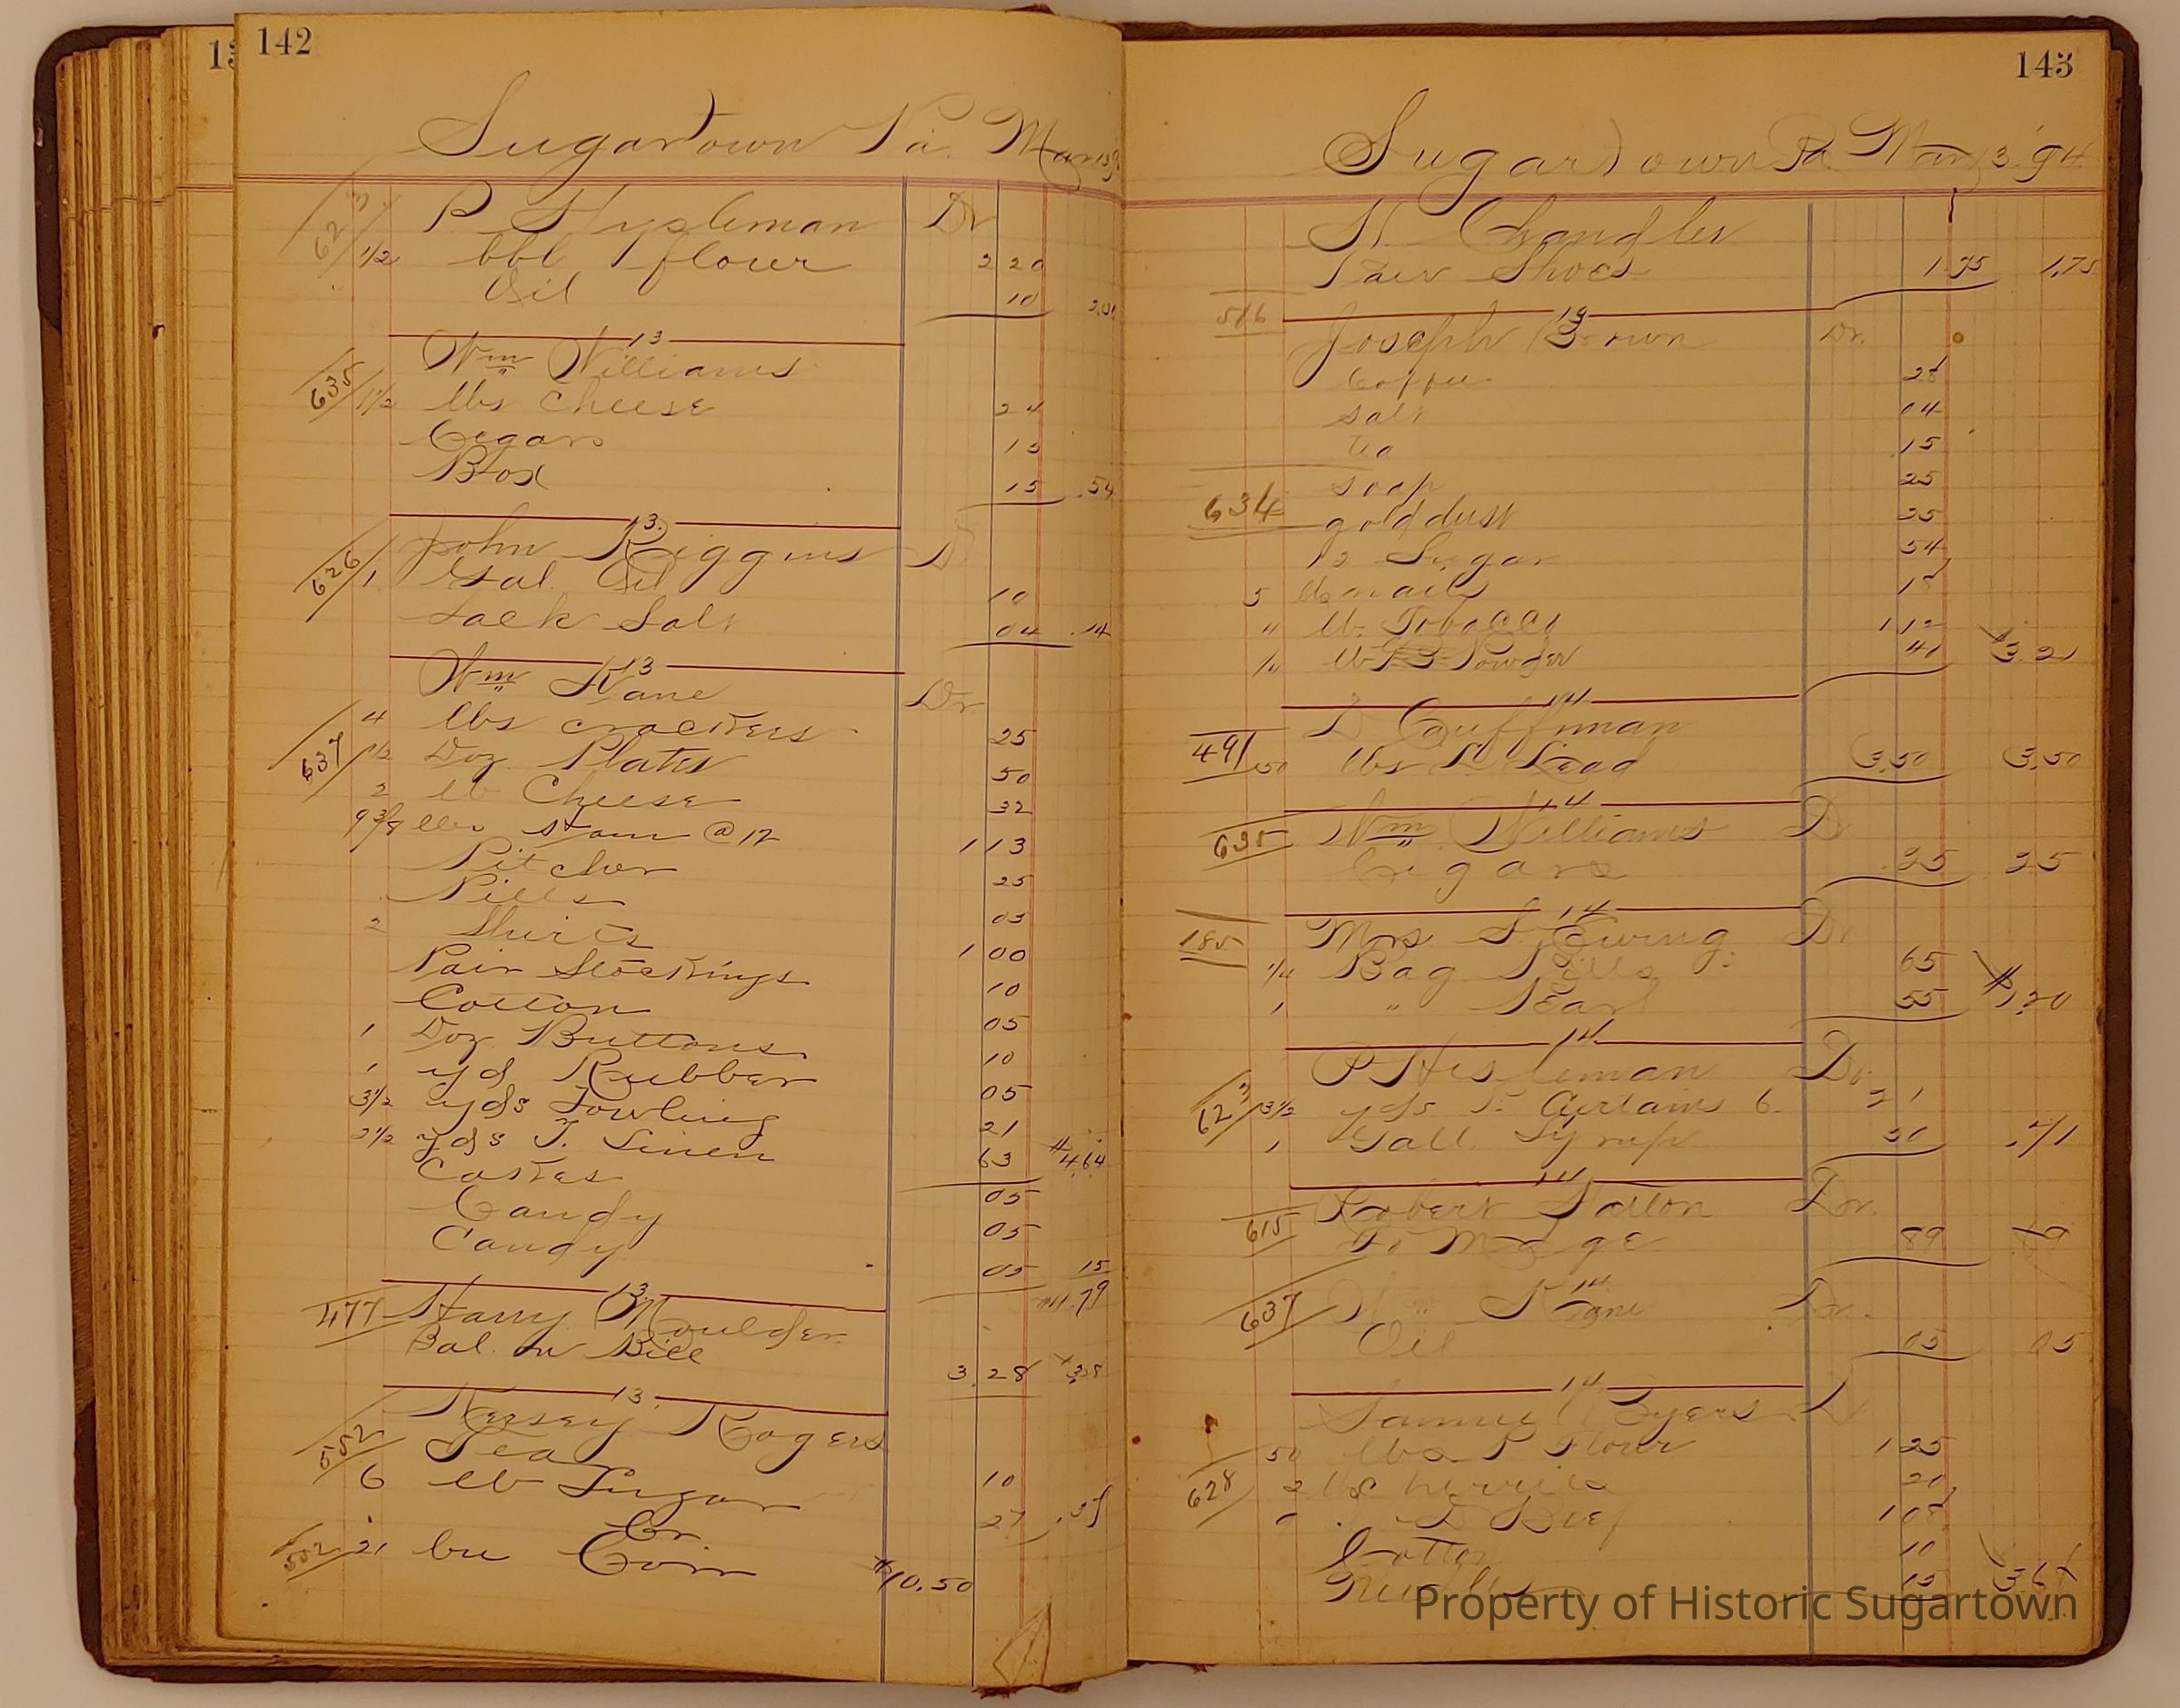 142
Sugartown Pa. May 13 9
623
P Hysleman Dr
1/2 bbl flour 2 20
Oil 10 2.30
13
Wm Williams
635 1 1/2 lbs Cheese 24
Cigars 15
Box 15 .54
13.
John Riggins D
626 1 Gal. Oil 10
Sack Salt 04 .14
13
Wm Kane Dr
4 lbs crackers 25
637 1/2 Doz Plates 50
2 lb Cheese 32
9 3/8 lbs @ 12 1 13
Pitcher 25
Pills 05
2 Shirts 1 00
Pair Stockings 10
Cotton 05
1 Doz Buttons 10
1 yd Rubber 05
3 1/2 yds Towling 21
2 1/2 yds T. Linen 63 4.64
Cakes 05
Candy 05
Candy 05 15
4.79
13.
477 Harry Moulder
Bal. on Bill 3.28
13.
Kersey Rogers
552 Tea 10
6 lb Sugar 27 .37
Cr
552 21 bu Corn $10.50
143
Sugartown Pa. May 13. 94
H Chandler
Pair Shoes 1.75 1.75
13
516 Joseph Brown Dr.
Coffee 28
Salt 04
Tea 15
Soap 25
634 gold dust 25
12 Sugar 54
5 lb nails 15
" lb. Tobacco 1 12
1/4 lb B Powder
14
D Cuffman
491 50 lbs Lead 3.50 3.50
14
635 Wm Williams D
Cigars .25 25
14
185 Mrs. S. Ewing Dr
1/4 Bag Pills 65
1 " Pearl 55 1.20
14
P Hesleman Dr.
623 3 1/2 yds Curtains 6. 21
1 Gall. Syrup 50 .71
14
615 Robert Patton Dr.
89
14
637 Wm Kane Dr.
Oil 05 05
14.
Samuel Byers D
50 lbs P Flour 1 25
628 2 20
D Beef 1 05
Cotton 10
15
Property of Historic Sugartown